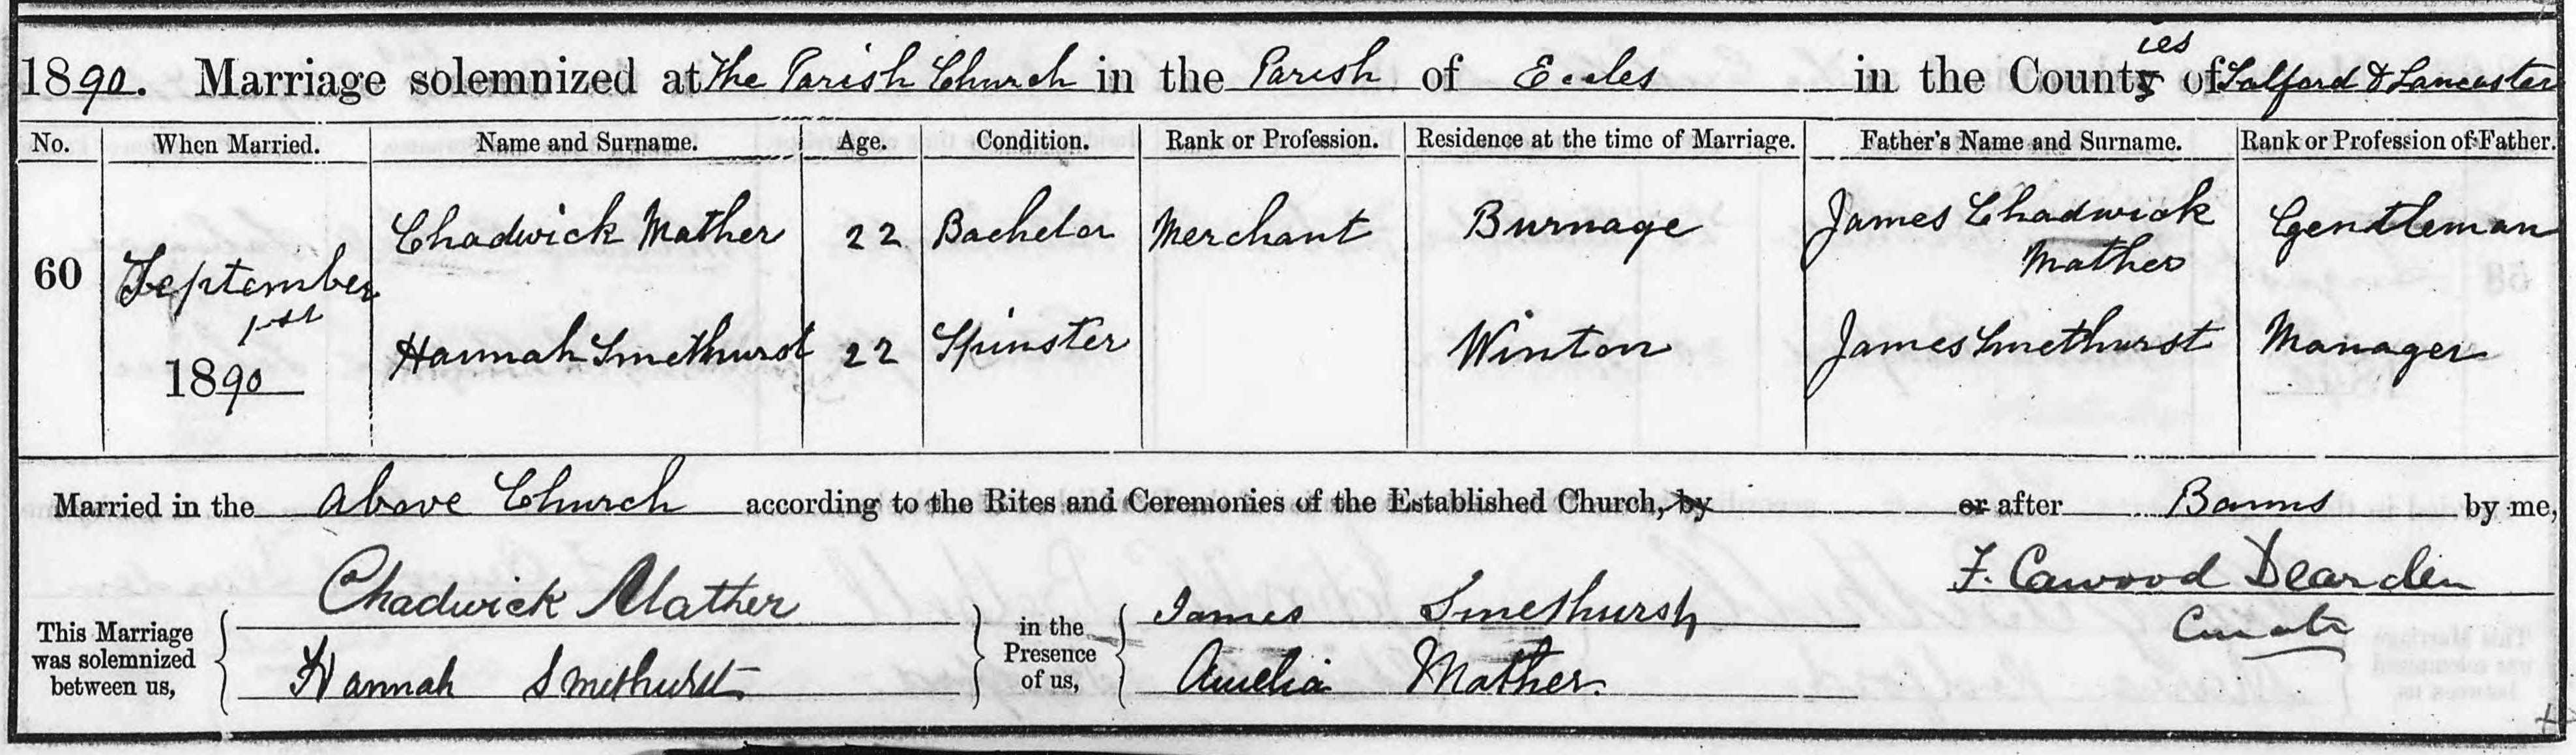 1890. Marriage solemnized at The Parish Church in the Parish of Eccles in the Counties of Salford & Lancaster
No. When Married. Name and Surname. Age. Condition. Rank or Profession. Residence at the time of Marriage. Father's Name and Surname. Rank or Profession of Father.
60 September 1st 1890
Chadwick Mather 22 Bachelor Merchant Burnage James Chadwick Mather Gentleman
Hannah Smethurst 22 Spinster Winton James Smethurst Manager
Married in the above Church according to the Rites and Ceremonies of the Established Church, by or after Banns by me,
F. Cawood Dearden
Curate
This Marriage was solemnized between us,
Chadwick Mather
Hannah Smethurst
in the Presence of us,
James Smethurst
Amelia Mather